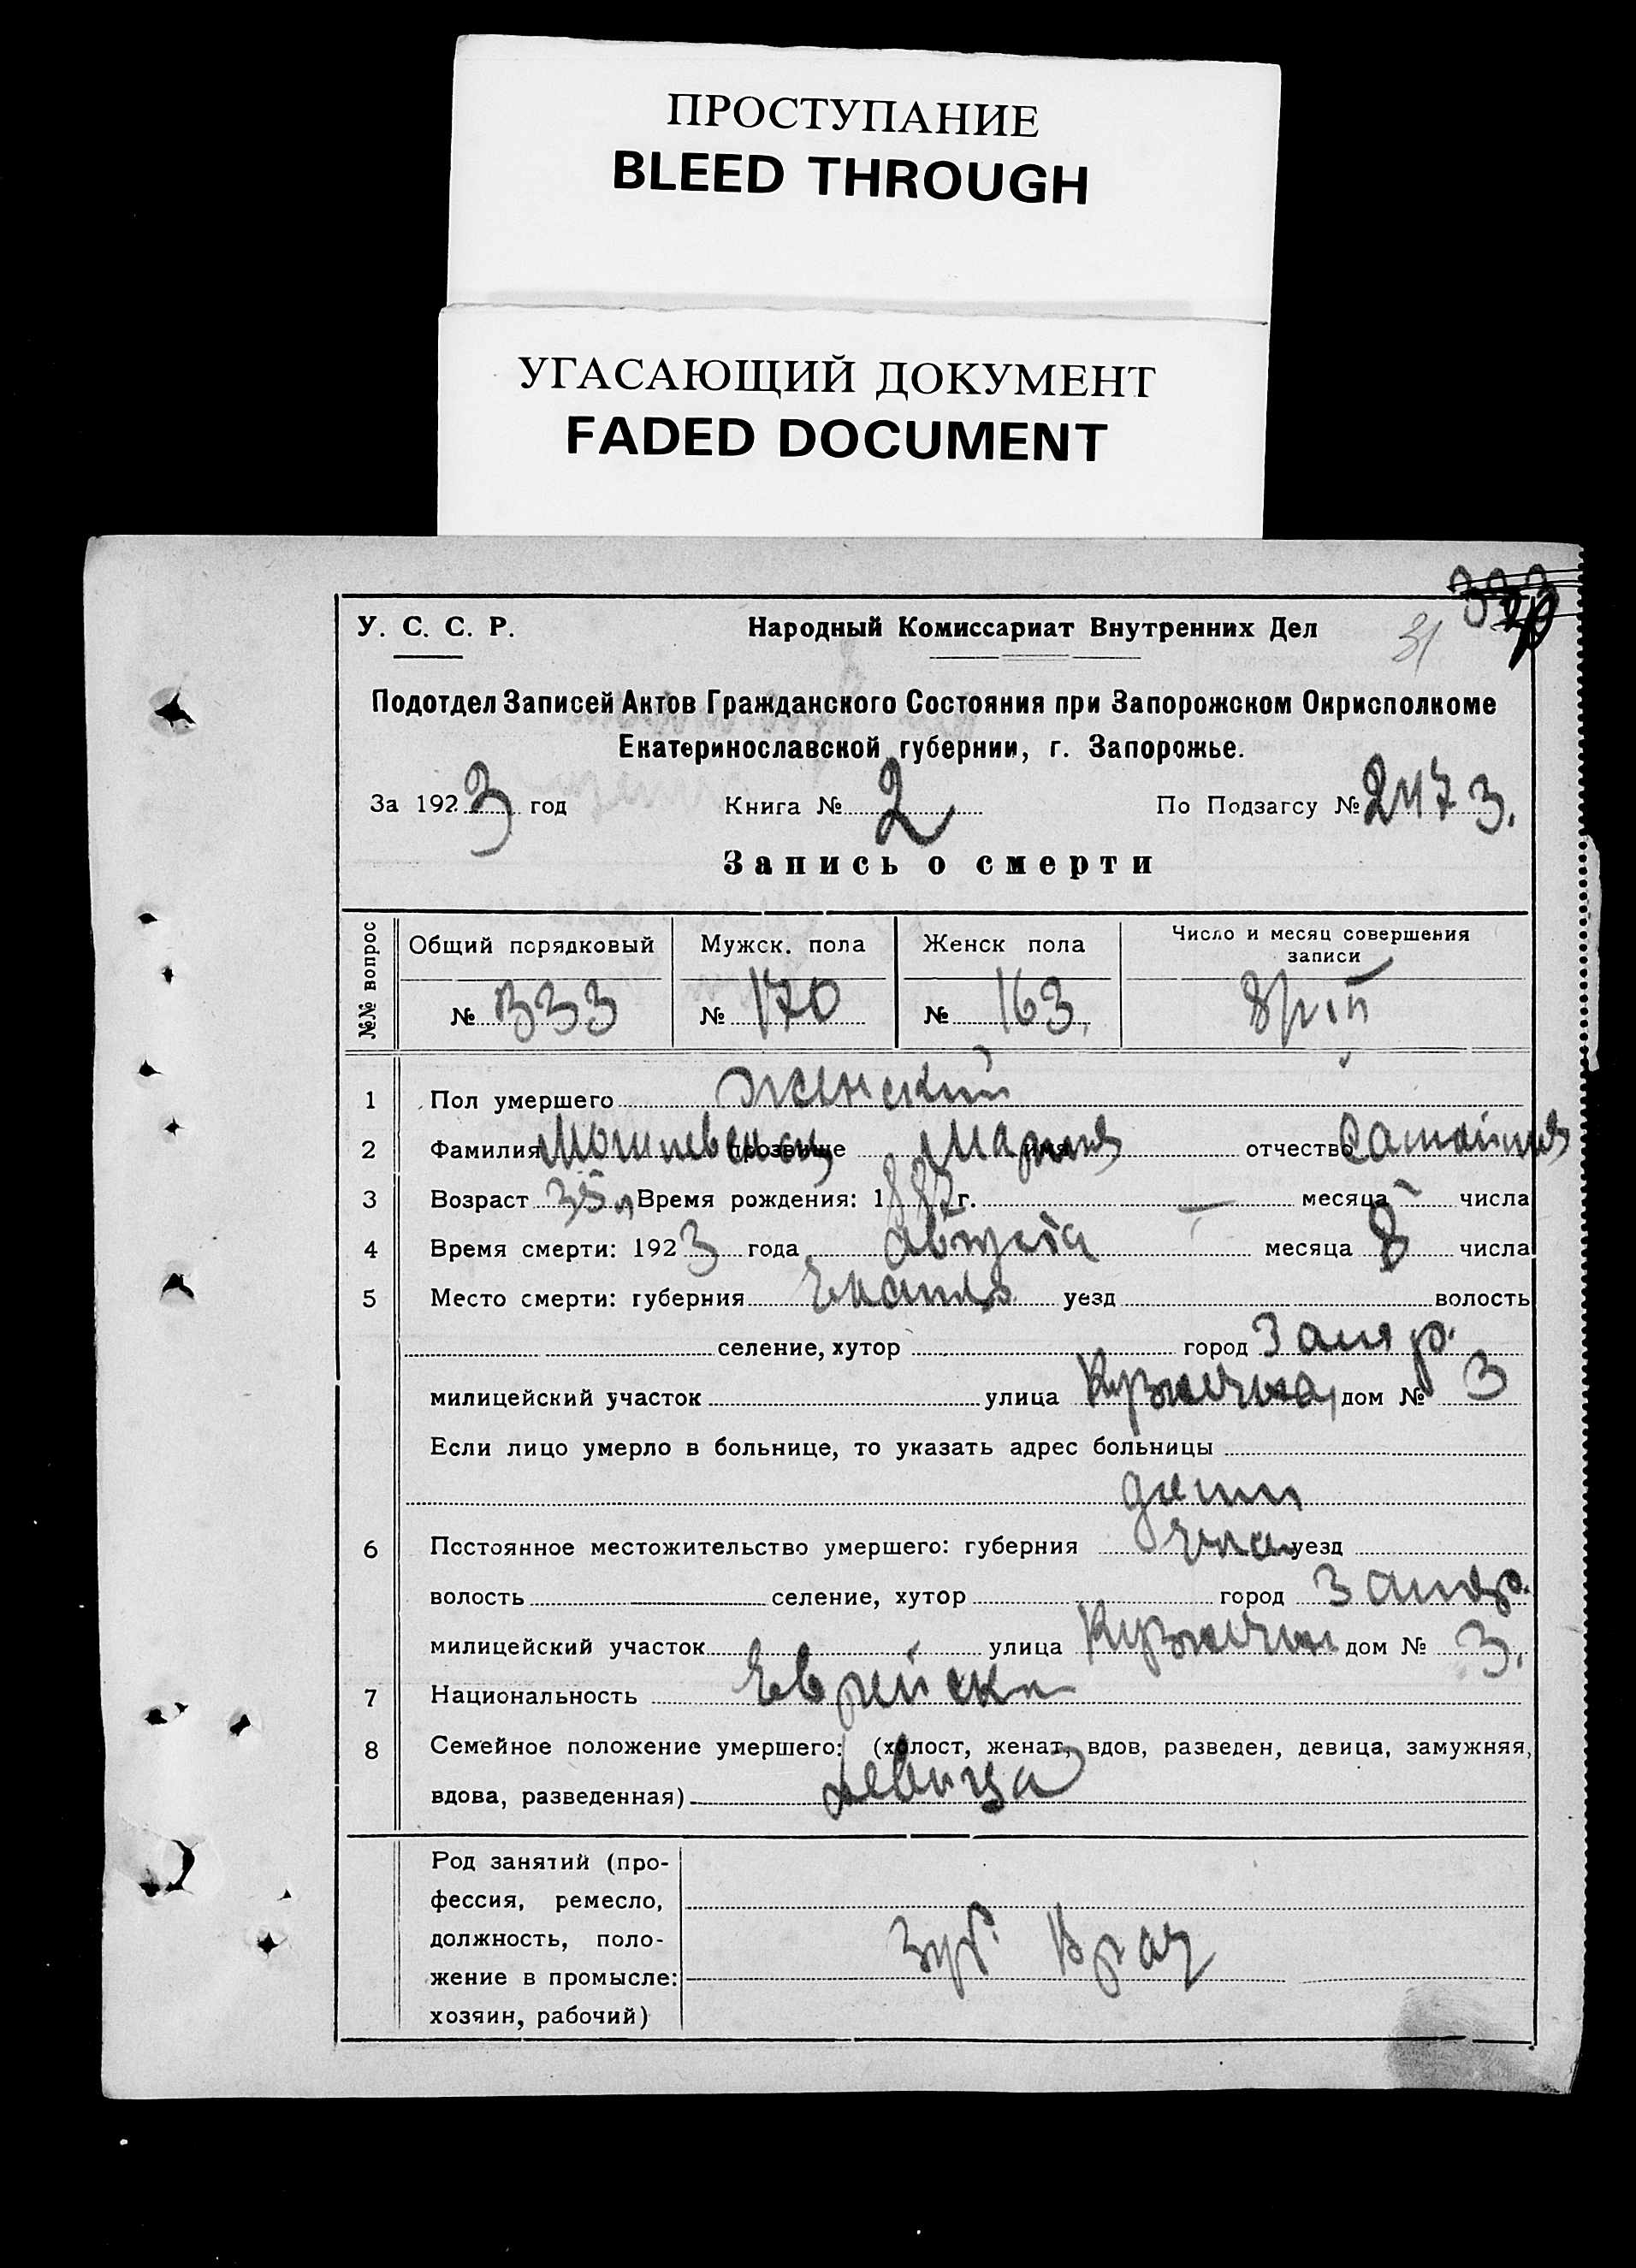 ПРОСТУПАНИЕ
BLEED THROUGH
УГАСАЮЩИЙ ДОКУМЕНТ
FADED DOCUMENT
31
У. С. С. Р. Народный Комиссариат Внутренних Дел
Подотдел Записей Актов Гражданского Состояния при Запорожском Окрисполкоме
Екатеринославской губернии, г. Запорожье.
За 1923 год Книга № 2 По Подзагсу № 2473.
Запись о смерти
№№ вопрос
Общий порядковый Мужск. пола Женск пола Число и месяц совершения записи
№ 333 № 170 № 163
1 Пол умершего Женский
2 Фамилия прозвище Мария имя отчество
3 Возраст 35 л Время рождения: 1887 г. — месяца — числа
4 Время смерти: 1923 года августа месяца 8 числа
5 Место смерти: губерния уезд волость
селение, хутор город Запор.
милицейский участок улица дом № 3
Если лицо умерло в больнице, то указать адрес больницы
6 Постоянное местожительство умершего: губерния уезд
волость селение, хутор город Запор.
милицейский участок улица дом № 3.
7 Национальность Еврейска
8 Семейное положение умершего: (холост, женат, вдов, разведен, девица, замужняя,
вдова, разведенная) девица
Род занятий (про-
фессия, ремесло,
должность, поло-
жение в промысле:
хозяин, рабочий)
Зуб. Врач